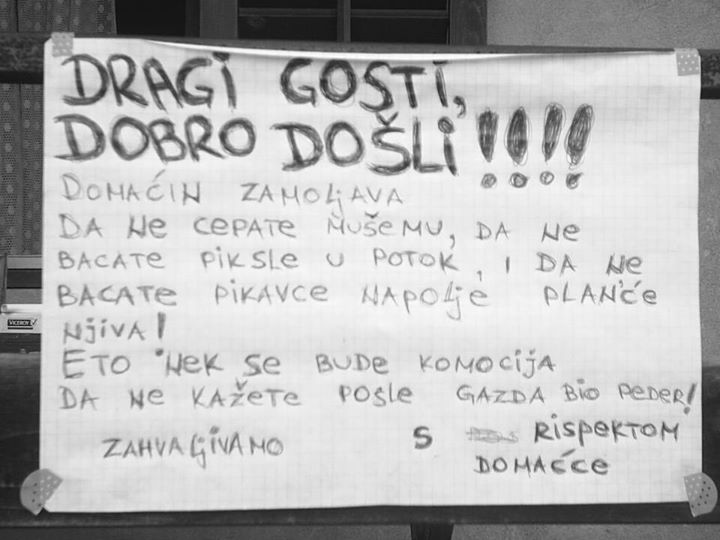 DRAGI GOSTI,
DOBRO DOŠLI !!!!
DOMAĆIN ZAMOLJAVA
DA NE CEPATE MUŠEMU, DA NE
BACATE PIKSLE U POTOK, I DA NE
BACATE PIKAVCE NAPOLJE PLAN'ĆE
NJIVA!
ETO 'NEK SE BUDE KOMOCIJA
DA NE KAŽETE POSLE GAZDA BIO PEDER!
ZAHVALJIVAMO S RISPEKTOM
DOMAĆĆE
VICEROY